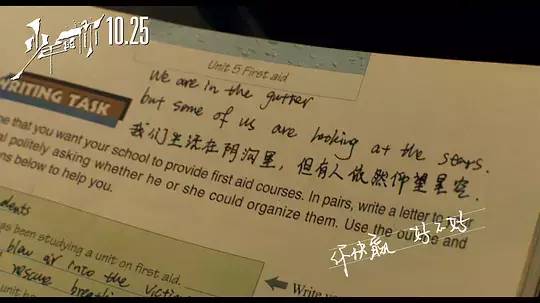 少年的你 10.25
Unit 5 First aid
We are in the gutter
but some of us are looking at the stars.
我们生活在阴沟里，但有人依然仰望星空.
WRITING TASK
ne that you want your school to provide first aid courses. In pairs, write a letter to
al politely asking whether he or she could organize them. Use the outline and
ons below to help you.
dents
as been studying a unit on first aid.
blow air into the victim
rescue breath
unit
Write